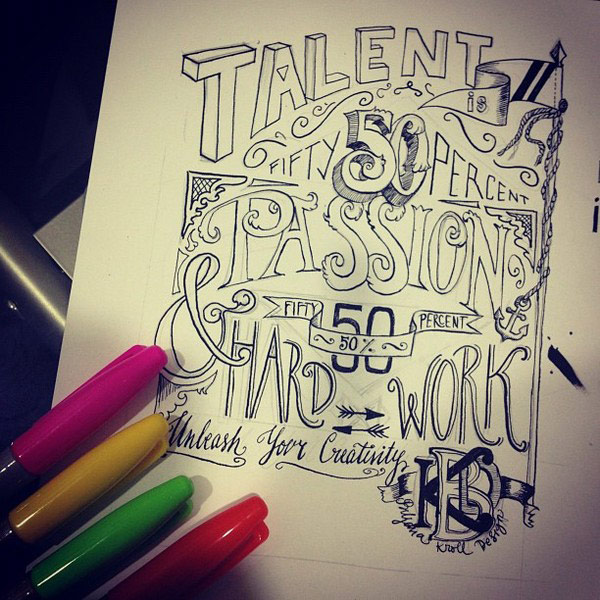 TALENT
is
FIFTY 50 PERCENT
PASSION
&
FIFTY 50 PERCENT
50%
HARD WORK
Unleash Your Creativity
KBD
Kroll Design